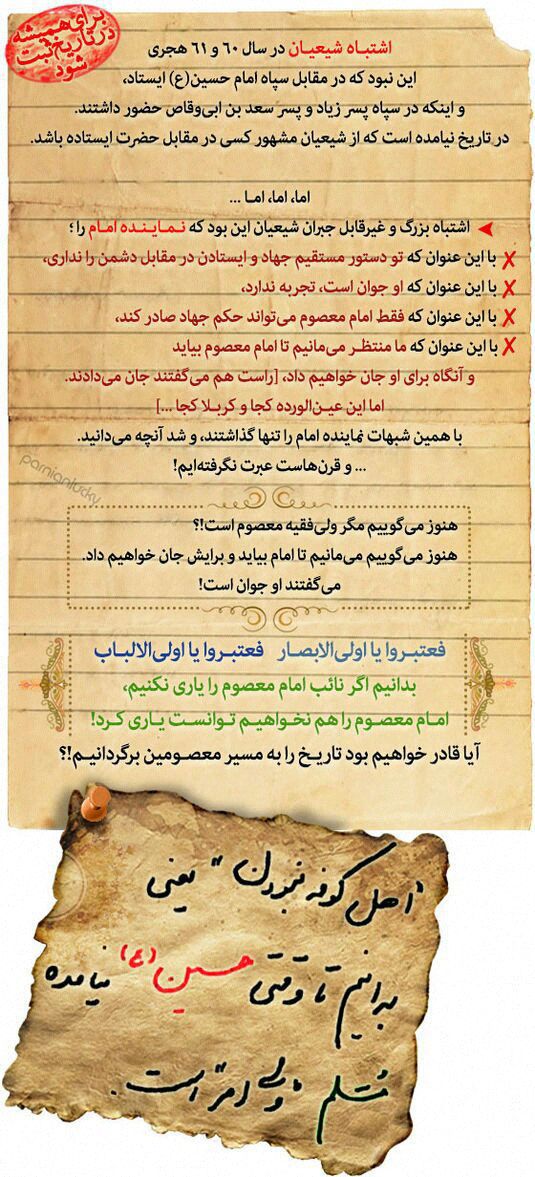 برای همیشه
در تاریخ ثبت
شود
اشتباه شیعیان در سال ٦٠ و ٦١ هجری
این نبود که در مقابل سپاه امام حسین(ع) ایستاد،
و اینکه در سپاه پسر زیاد و پسر سعد بن ابی‌وقاص حضور داشتند.
در تاریخ نیامده است که از شیعیان مشهور کسی در مقابل حضرت ایستاده باشد.
اما، اما، اما ...
اشتباه بزرگ و غیرقابل جبران شیعیان این بود که نماینده امام را ؛
✗ با این عنوان که تو دستور مستقیم جهاد و ایستادن در مقابل دشمن را نداری،
✗ با این عنوان که او جوان است، تجربه ندارد،
✗ با این عنوان که فقط امام معصوم می‌تواند حکم جهاد صادر کند،
✗ با این عنوان که ما منتظر می‌مانیم تا امام معصوم بیاید
و آنگاه برای او جان خواهیم داد، [راست هم می‌گفتند جان می‌دادند.
اما این عین‌الورده کجا و کربلا کجا ...]
با همین شبهات نماینده امام را تنها گذاشتند، و شد آنچه می‌دانید.
... و قرن‌هاست عبرت نگرفته‌ایم!
parnianlucky
هنوز می‌گوییم مگر ولی‌فقیه معصوم است!؟
هنوز می‌گوییم می‌مانیم تا امام بیاید و برایش جان خواهیم داد.
می‌گفتند او جوان است!
فعتبروا یا اولی‌الابصار فعتبروا یا اولی‌الالباب
بدانیم اگر نائب امام معصوم را یاری نکنیم،
امام معصوم را هم نخواهیم توانست یاری کرد!
آیا قادر خواهیم بود تاریخ را به مسیر معصومین برگردانیم!؟
"اهل کوفه نبودن" یعنی
بدانیم تا وقتی حسین (ع) نیامده
مُسْلم "ولی امر" است.